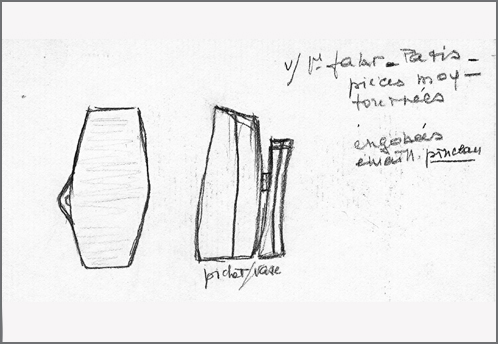 v/ 1r fabr - Paris -
pièces moy -
tournées
engobées
émaill. pinceau
pichet/vase